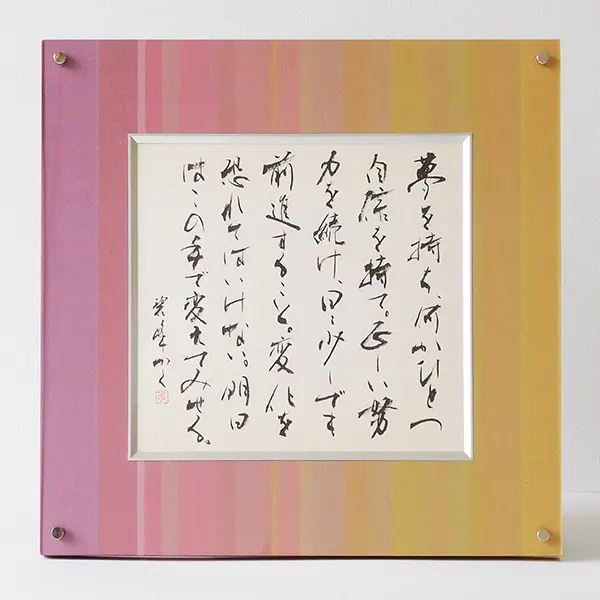 夢を持ち、何かひとつ
自信を持て。正しい努
力を続け、日々少しずつ
前進すること。変化を
恐れてはいけない。明日
はこの手で変えてみせる。